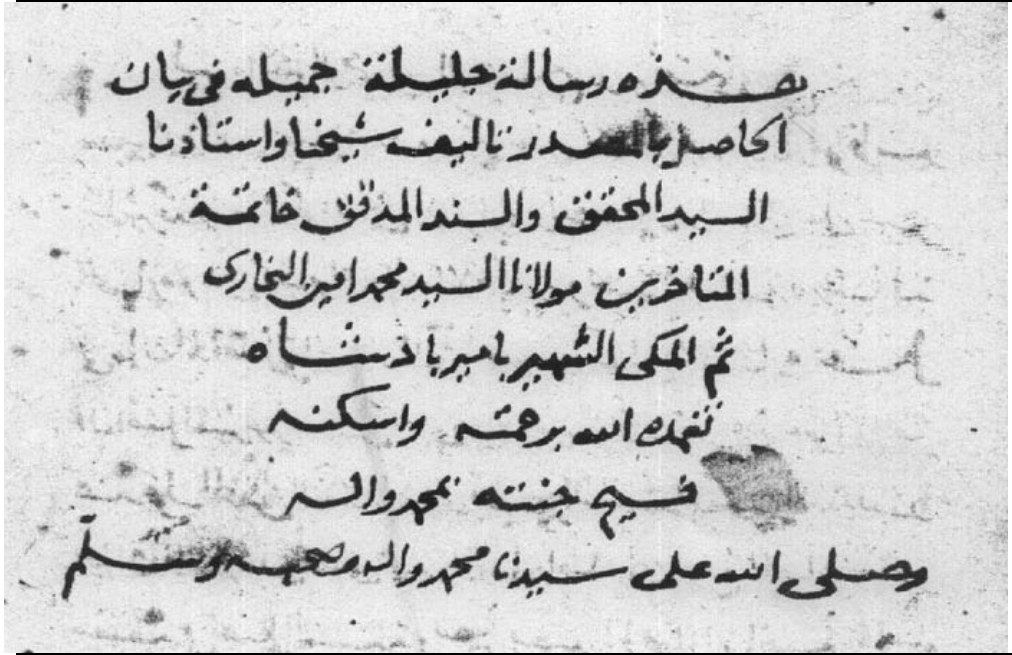 هذه رسالة جليلة جميله في بيان
الحاصل بالمصدر تاليف شيخنا واستاذنا
السيد المحقق والسند المدقق خاتمة
المتاخرين مولانا السيد محمد امين البخارى
ثم المكى الشهير بامير باذشاه
تغمده الله برحمته واسكنه
فسيح جنته بمحمد واله
وصلى الله على سيدنا محمد واله وصحبه وسلم